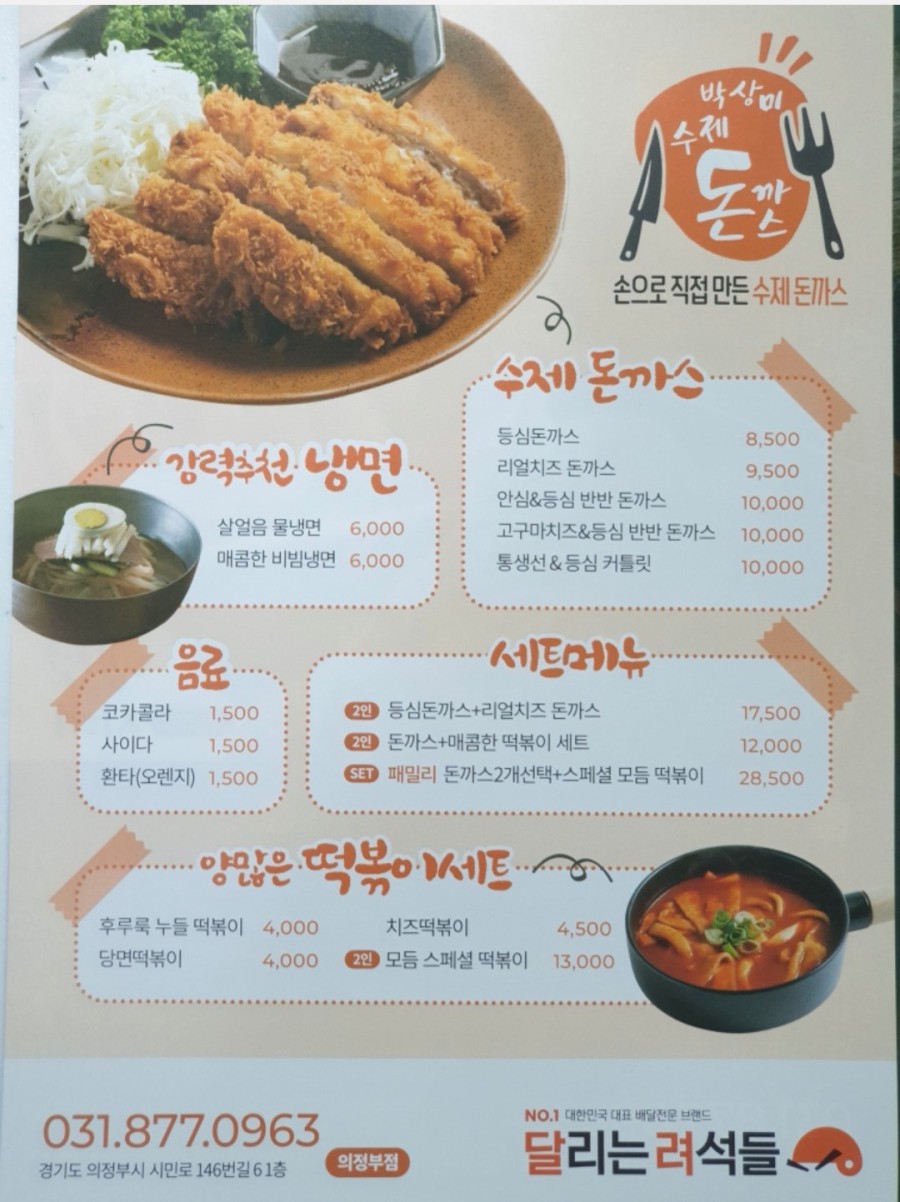 박상미
수제
돈까스
손으로 직접 만든 수제 돈까스
수제 돈까스
등심돈까스 8,500
리얼치즈 돈까스 9,500
안심&등심 반반 돈까스 10,000
고구마치즈&등심 반반 돈까스 10,000
통생선 & 등심 커틀릿 10,000
강력추천 냉면
살얼음 물냉면 6,000
매콤한 비빔냉면 6,000
음료
코카콜라 1,500
사이다 1,500
환타(오렌지) 1,500
세트메뉴
2인 등심돈까스+리얼치즈 돈까스 17,500
2인 돈까스+매콤한 떡볶이 세트 12,000
SET 패밀리 돈까스2개선택+스페셜 모듬 떡볶이 28,500
양많은 떡볶이세트
후루룩 누들 떡볶이 4,000 치즈떡볶이 4,500
당면떡볶이 4,000 2인 모듬 스페셜 떡볶이 13,000
031.877.0963
경기도 의정부시 시민로 146번길 6 1층 의정부점
NO.1 대한민국 대표 배달전문 브랜드
달리는 려석들